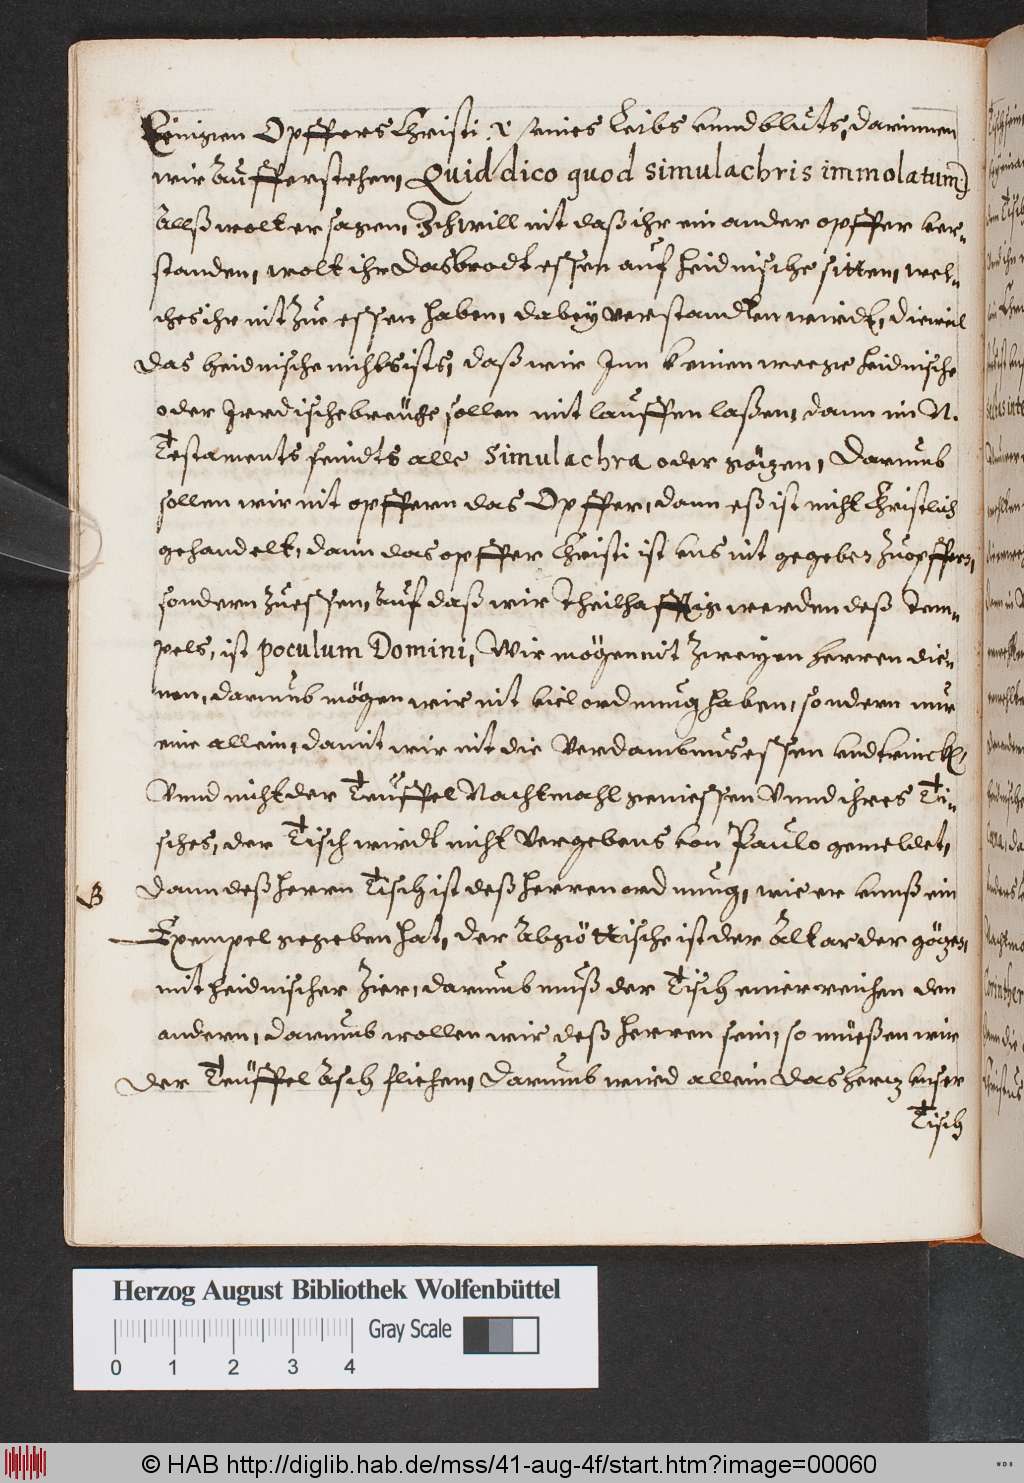 Einigen Opffers Christi, seines Leibs unnd bluts, darinnen
wir Aufferstehen, Quid dico quod simulachris immolatum]
Allß wolt er sagen, Ich will nit daß ihr ein ander opffer ver-
standen, wolt ihr das brodt essen auf heidnische sitten, wel-
ches ihr nit zue essen haben, dabey verstandten wirdt, dieweil
das heidnische nichts ists, daß wir Inn keinen weege heidnische
oder Irrdische breüche sollen mit lauffen laßen, dann im N.
Testaments seindts alle Simulachra oder götzen, Darumb
sollen wir nit opffern das Opffer, dann eß ist nicht Christlich
gehandelt, dann das opffer Christi ist uns nit gegeben zu opffern,
sondern zue essen, Auf daß wir theilhafftig werden deß Tem-
pels, ist poculum Domini, Wir mögen nit zweyen herren die-
nen, darumb mögen wir nit viel ordnung haben, sondern nur
eine allein, damit wir nit die Verdambnus essen und trincken
Unnd nicht der Teüffel Nachtmahl geniessen Unnd ihres Ti-
sches, der Tisch wirdt nicht Vergebens von Paulo gemeldet,
B dann deß Herrn Tisch ist deß Herren ordnung, wie er unnß ein
Exempel gegeben hat, der Abgöttische ist der Altar der götzen,
mit heidnischer Zier, darumb muß der Tisch einer weichen den
andern, darumb wollen wir deß Herren sein, so müeßen wir
der Teüffel Tisch fliehen, darumb wird allein das hertz unser
Tisch
Herzog August Bibliothek Wolfenbüttel
Gray Scale
0 1 2 3 4
© HAB http://diglib.hab.de/mss/41-aug-4f/start.htm?image=00060